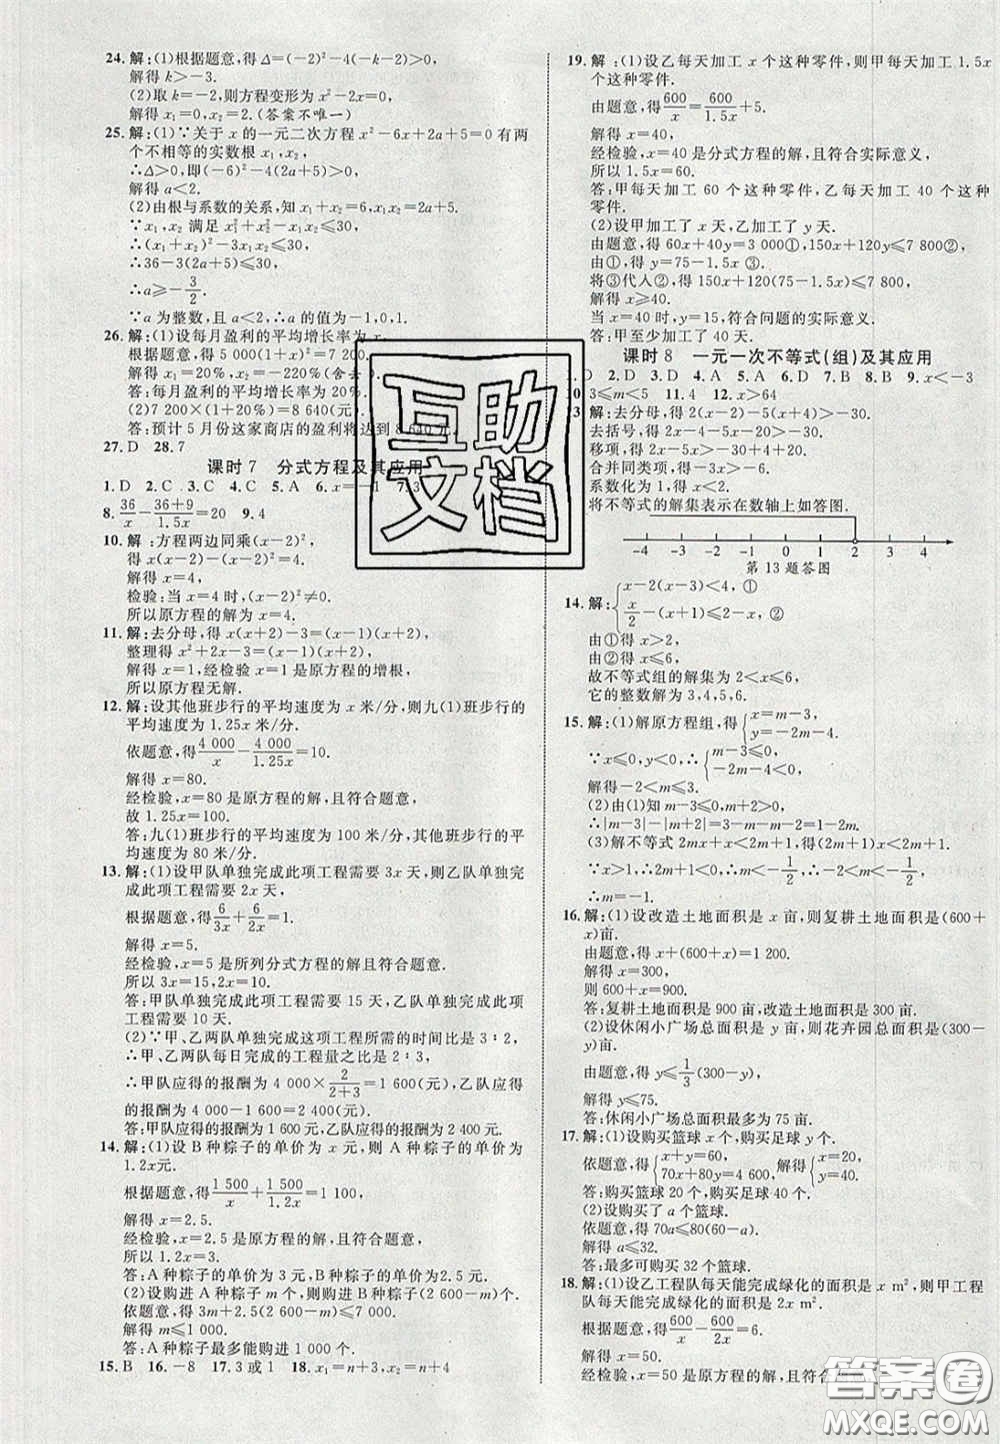 24. 解:(1)根据题意,得 Δ=(-2)²-4(-k-2)>0,
解得 k>-3.
(2)取 k=-2,则方程变形为 x²-2x=0,
解得 x₁=0,x₂=2.(答案不唯一)
25. 解:(1)∵关于 x 的一元二次方程 x²-6x+2a+5=0 有两
个不相等的实数根 x₁,x₂,
∴Δ>0,即(-6)²-4(2a+5)>0,
解得 a<2.
(2)由根与系数的关系,知 x₁+x₂=6,x₁x₂=2a+5.
∵x₁,x₂ 满足 x₁²+x₂²-x₁x₂≤30,
∴(x₁+x₂)²-3x₁x₂≤30,
∴36-3(2a+5)≤30,
∴a≥-3/2.
∵a 为整数,且 a<2,∴a 的值为-1,0,1.
26. 解:(1)设每月盈利的平均增长率为 x,
根据题意,得 5 000(1+x)²=7 200,
解得 x₁=20%,x₂=-220%(舍去).
答:每月盈利的平均增长率为 20%.
(2)7 200×(1+20%)=8 640(元).
答:预计 5 月份这家商店的盈利将达到 8 640 元.
27. D 28. 7
课时 7 分式方程及其应用
1. D 2. C 3. C 4. C 5. A 6. x=-1 7. 3
8. 36/x-(36+9)/1.5x=20 9. 4
10. 解:方程两边同乘(x-2)²,
得 x(x-2)-(x-2)²=4,
解得 x=4,
检验:当 x=4 时,(x-2)²≠0.
所以原方程的解为 x=4.
11. 解:去分母,得 x(x+2)-3=(x-1)(x+2),
整理得 x²+2x-3=(x-1)(x+2),
解得 x=1,经检验 x=1 是原方程的增根,
所以原方程无解.
12. 解:设其他班步行的平均速度为 x 米/分,则九(1)班步行的
平均速度为 1.25x 米/分.
依题意,得 4 000/x-4 000/1.25x=10.
解得 x=80.
经检验,x=80 是原方程的解,且符合题意,
故 1.25x=100.
答:九(1)班步行的平均速度为 100 米/分,其他班步行的平
均速度为 80 米/分.
13. 解:(1)设甲队单独完成此项工程需要 3x 天,则乙队单独完
成此项工程需要 2x 天,
根据题意,得 6/3x+6/2x=1,
解得 x=5.
经检验,x=5 是所列分式方程的解且符合题意.
所以 3x=15,2x=10.
答:甲队单独完成此项工程需要 15 天,乙队单独完成此项
工程需要 10 天.
(2)∵甲、乙两队单独完成这项工程所需的时间比是 3∶2,
∴甲、乙两队每日完成的工程量之比是 2∶3,
∴甲队应得的报酬为 4 000×2/(2+3)=1 600(元),乙队应得
的报酬为 4 000-1 600=2 400(元).
答:甲队应得的报酬为 1 600 元,乙队应得的报酬为 2 400 元.
14. 解:(1)设 B 种粽子的单价为 x 元,则 A 种粽子的单价为
1.2x元.
根据题意,得 1 500/x+1 500/1.2x=1 100,
解得 x=2.5.
经检验,x=2.5 是原方程的解,且符合题意,
所以 1.2x=3.
答:A 种粽子的单价为 3 元,B 种粽子的单价为2.5 元.
(2)设购进 A 种粽子 m 个,则购进 B 种粽子(2 600-m)个,
依题意,得 3m+2.5(2 600-m)≤7 000,
解得 m≤1 000.
答:A 种粽子最多能购进 1 000 个.
15. B 16. -8 17. 3 或 1 18. x₁=n+3,x₂=n+4
19. 解:(1)设乙每天加工 x 个这种零件,则甲每天加工 1.5x
个这种零件.
由题意,得 600/x=600/1.5x+5.
解得 x=40,
经检验,x=40 是分式方程的解,且符合实际意义,
所以 1.5x=60.
答:甲每天加工 60 个这种零件,乙每天加工 40 个这种
零件.
(2)设甲加工了 x 天,乙加工了 y 天.
由题意,得 60x+40y=3 000①,150x+120y≤7 800②.
由①,得 y=75-1.5x③.
将③代人②,得 150x+120(75-1.5x)≤7 800,
解得 x≥40.
当 x=40 时,y=15,符合问题的实际意义.
答:甲至少加工了 40 天.
课时 8 一元一次不等式(组)及其应用
D 2. D 3. D 4. A 5. A 6. D 7. B 8. B 9. x<-3
0 3≤m<5 11. 4 12. x>64
3 解:去分母,得 2(x-2)-5(x+4)>-30,
去括号,得 2x-4-5x-20>-30.
移项,得 2x-5x>-30+4+20.
合并同类项,得-3x>-6.
系数化为 1,得 x<2.
将不等式的解集表示在数轴上如答图.
-4 -3 -2 -1 0 1 2 3 4
第 13 题答图
14. 解:{x-2(x-3)<4, ①
x/2-(x+1)≤2-x, ②
由①得 x>2,
由②得 x≤6,
故不等式组的解集为 2<x≤6,
它的整数解为 3,4,5,6.
15. 解:(1)解原方程组,得{x=m-3,
y=-2m-4.
∵x≤0,y<0,∴{m-3≤0,
-2m-4<0,
解得-2<m≤3.
(2)由(1)知 m-3≤0,m+2>0,
∴|m-3|-|m+2|=3-m-m-2=1-2m.
(3)解不等式 2mx+x<2m+1,得(2m+1)x<2m+1,
∵x>1,∴2m+1<0,∴m<-1/2,∴-2<m<-1/2,
∴m=-1.
16. 解:(1)设改造土地面积是 x 亩,则复耕土地面积是(600+
x)亩.
由题意,得 x+(600+x)=1 200.
解得 x=300,
则 600+x=900.
答:复耕土地面积是 900 亩,改造土地面积是 300 亩.
(2)设休闲小广场总面积是 y 亩,则花卉园总面积是(300-
y)亩.
由题意,得 y≤1/3(300-y),
解得 y≤75.
答:休闲小广场总面积最多为 75 亩.
17. 解:(1)设购买篮球 x 个,购买足球 y 个,
依题意,得{x+y=60,
70x+80y=4 600,解得{x=20,
y=40.
答:购买篮球 20 个,购买足球 40 个.
(2)设购买了 a 个篮球.
依题意,得 70a≤80(60-a).
解得 a≤32.
答:最多可购买 32 个篮球.
18. 解:(1)设乙工程队每天能完成绿化的面积是 x m²,则甲工程
队每天能完成绿化的面积是 2x m².
根据题意,得 600/x-600/2x=6,
解得 x=50.
经检验,x=50 是原方程的解,且符合
互助
文档
答案圈
MXQE.COM